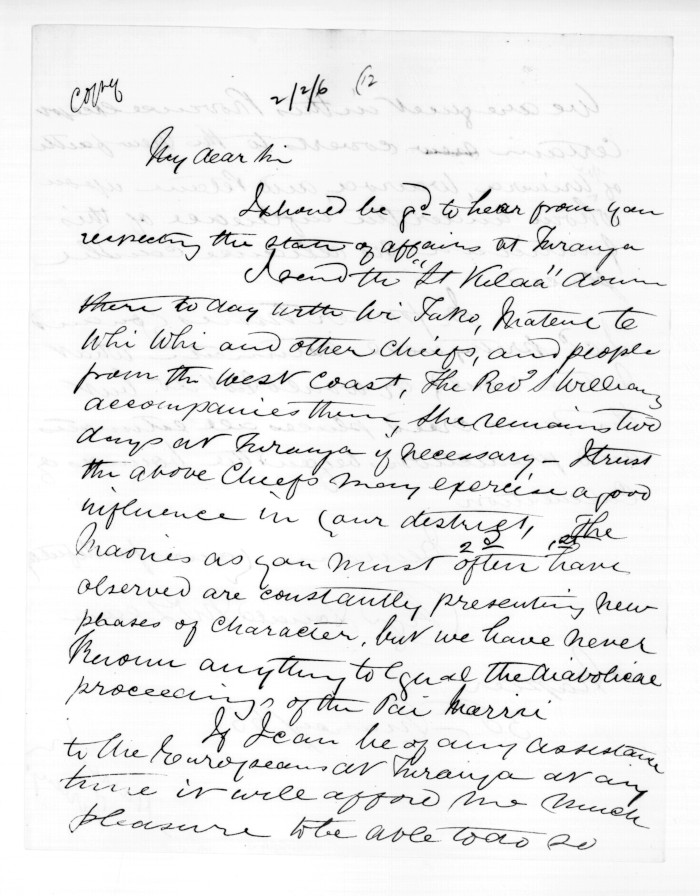 Copy
2/2/6 (12
My dear Sir
I should be gd. to hear from you
respecting the state of affairs at Turanga
I send the "St Kilda" down
there to day with Wi Tako, Matene te
Whi Whi and other Chiefs, and people
from the West Coast, The Revd S Williams
accompanies them, she remains two
days at Turanga if necessary – I trust
the above Chiefs may exercise a good
influence in your district, The
Maories as you must 2d often 1st have
observed are constantly presenting new
phases of character, but we have never
known anything to Equal the diabolical
proceedings of the Pai Marrii
If I can be of any assistance
to the Europeans at Turanga at any
time it will afford me much
pleasure to be able to do so